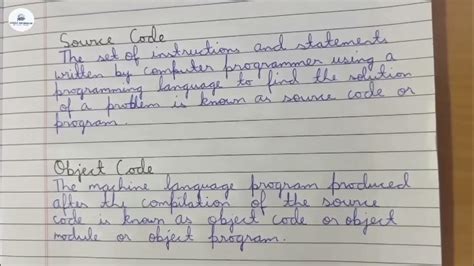 Source Code
The set of instructions and statements
written by computer programmer using a
programming language to find the solution
of a problem is known as source code or
program.
Object Code
The machine language program produced
after the compilation of the source
code is known as object code or object
module or object program.